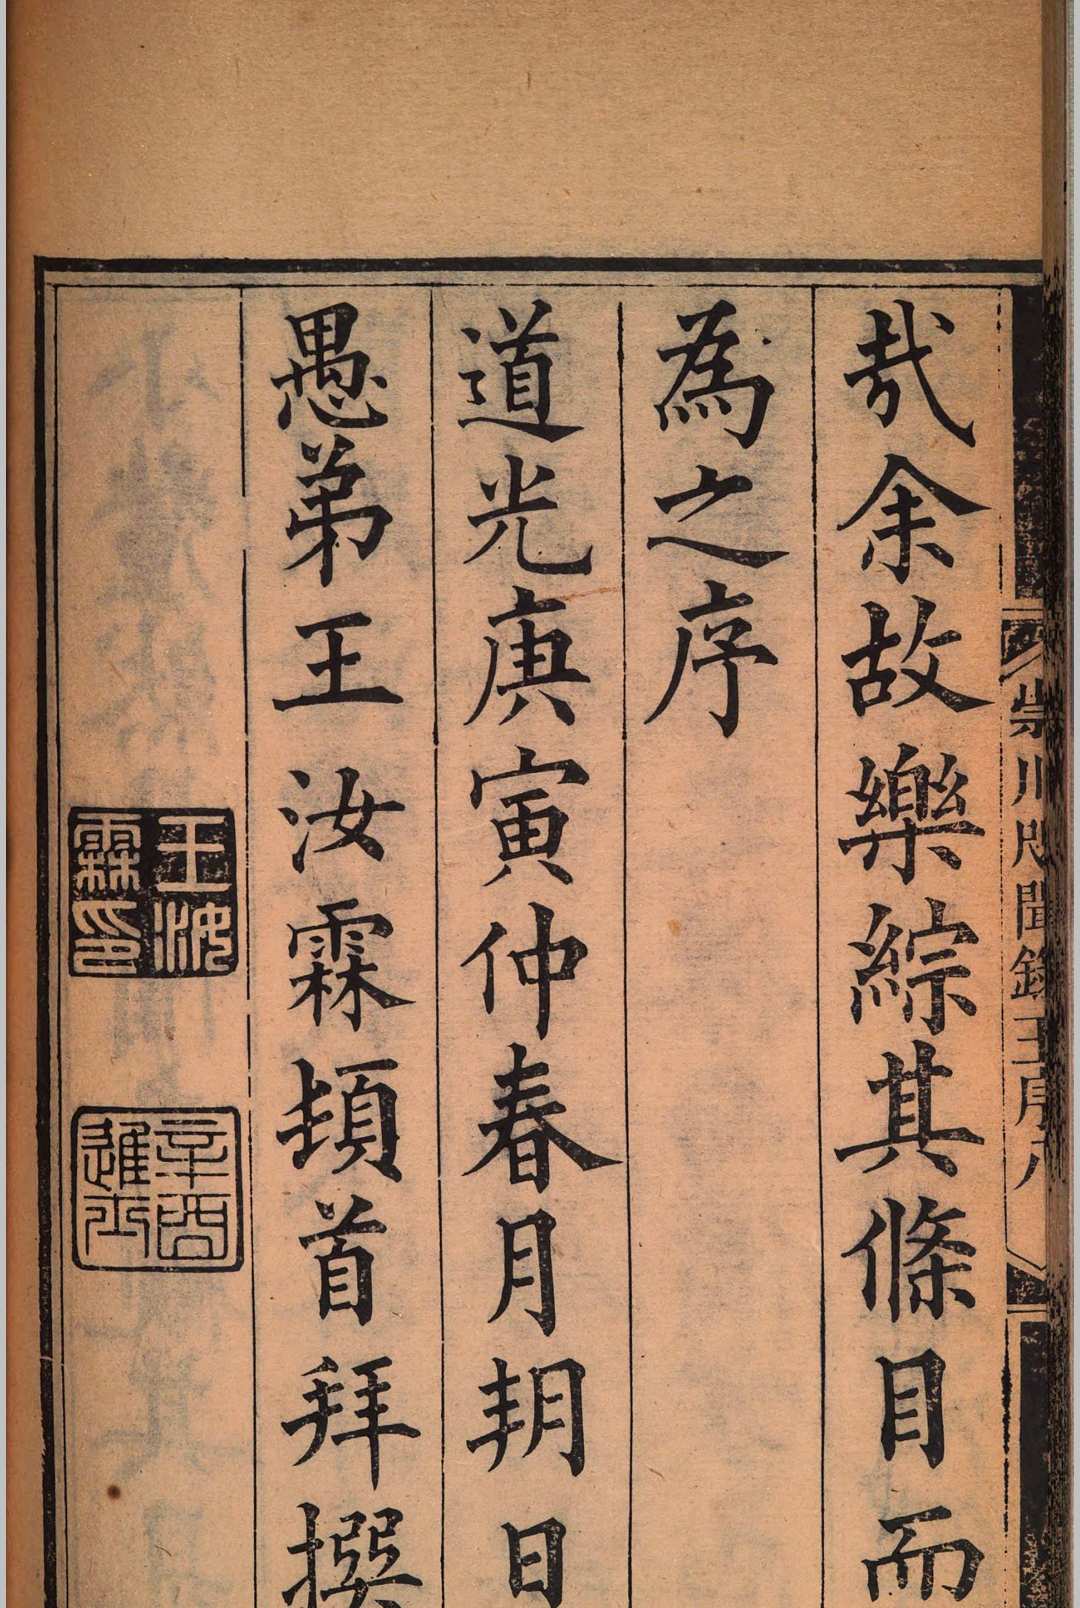 哉余故樂綜其條目而
為之序
道光庚寅仲春月朔日
愚弟王汝霖頓首拜撰
王汝霖印
辛酉進士
崇川咫聞錄王序八